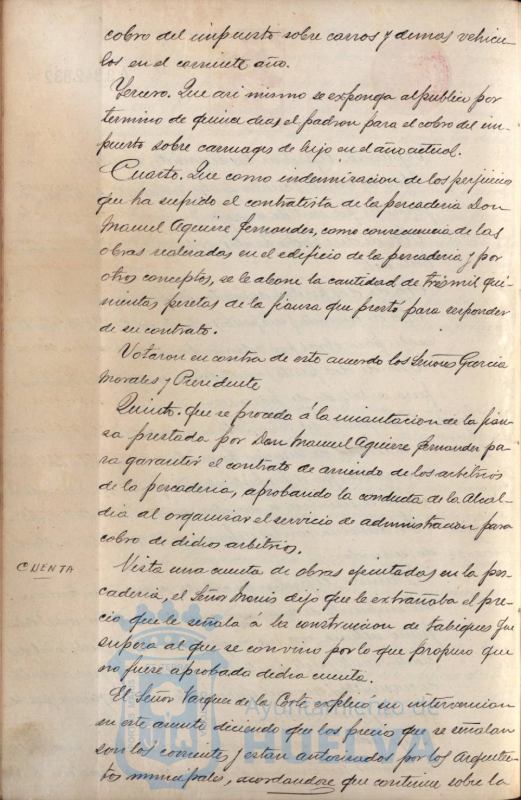 cobro del impuesto sobre carros y demas vehicu-
los en el corriente año.
Tercero. Que asi mismo se exponga al publico por
termino de quince dias el padron para el cobro del im-
puesto sobre carruages de lujo en el año actual.
Cuarto. Que como indemnizacion de los perjuicios
que ha sufrido el contratista de la pescaderia Don
Manuel Aguirre Fernandez, como consecuencia de las
obras realizadas en el edificio de la pescaderia y por
otros conceptos, se le abone la cantidad de tres mil qui-
nientas pesetas de la fianza que presto para responder
de su contrato.
Votaron en contra de este acuerdo los Señores Garcia
Morales y Presidente
Quinto. Que se proceda á la incautacion de la fian-
za prestada por Don Manuel Aguirre Fernandez pa-
ra garantir el contrato de arriendo de los arbitrios
de la pescaderia, aprobando la conducta de la Alcal-
dia al organizar el servicio de administracion para
cobro de dichos arbitrios.
CUENTA
Vista una cuenta de obras ejecutadas en la pes-
caderia, el Señor Monis dijo que le extrañaba el pre-
cio que le señala á la construccion de tabiques que
supera al que se convino por lo que propuso que
no fuese aprobada dicha cuenta.
El Señor Vazquez de la Corte explicó su intervencion
en este asunto, diciendo que los precios que se señalan
son los corrientes y estan autorizados por los Arquitec-
tos municipales, acordandose que continue sobre la
Ayuntamiento de
HUELVA